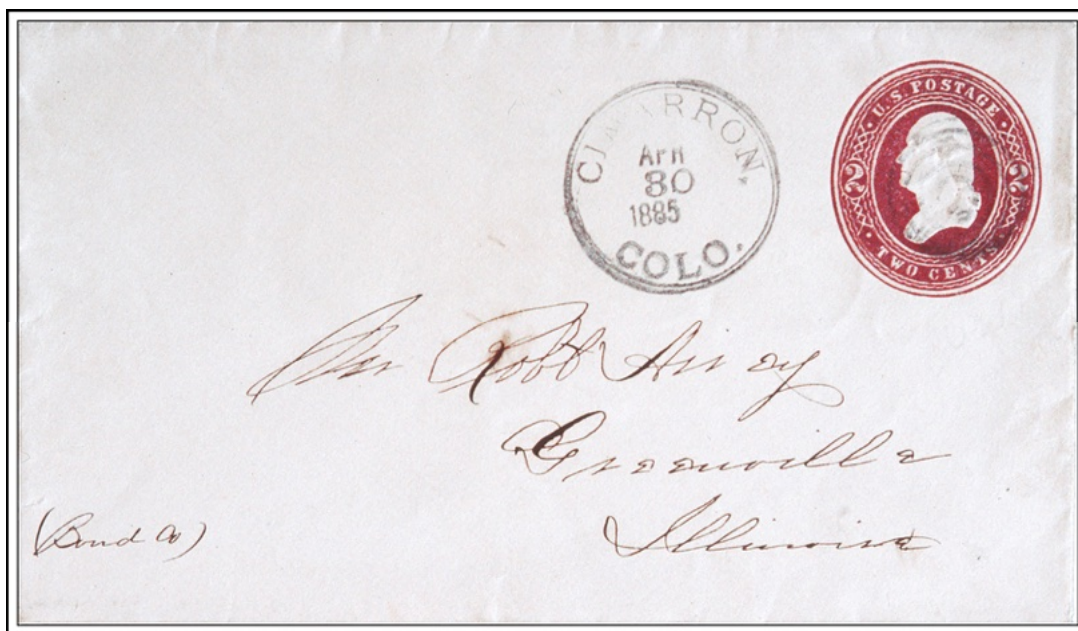 CIMARRON,
APR
30
1885
COLO.
U.S. POSTAGE
2 2
TWO CENTS
Mr Robt
Greenville
Illinois
(Bond Co)